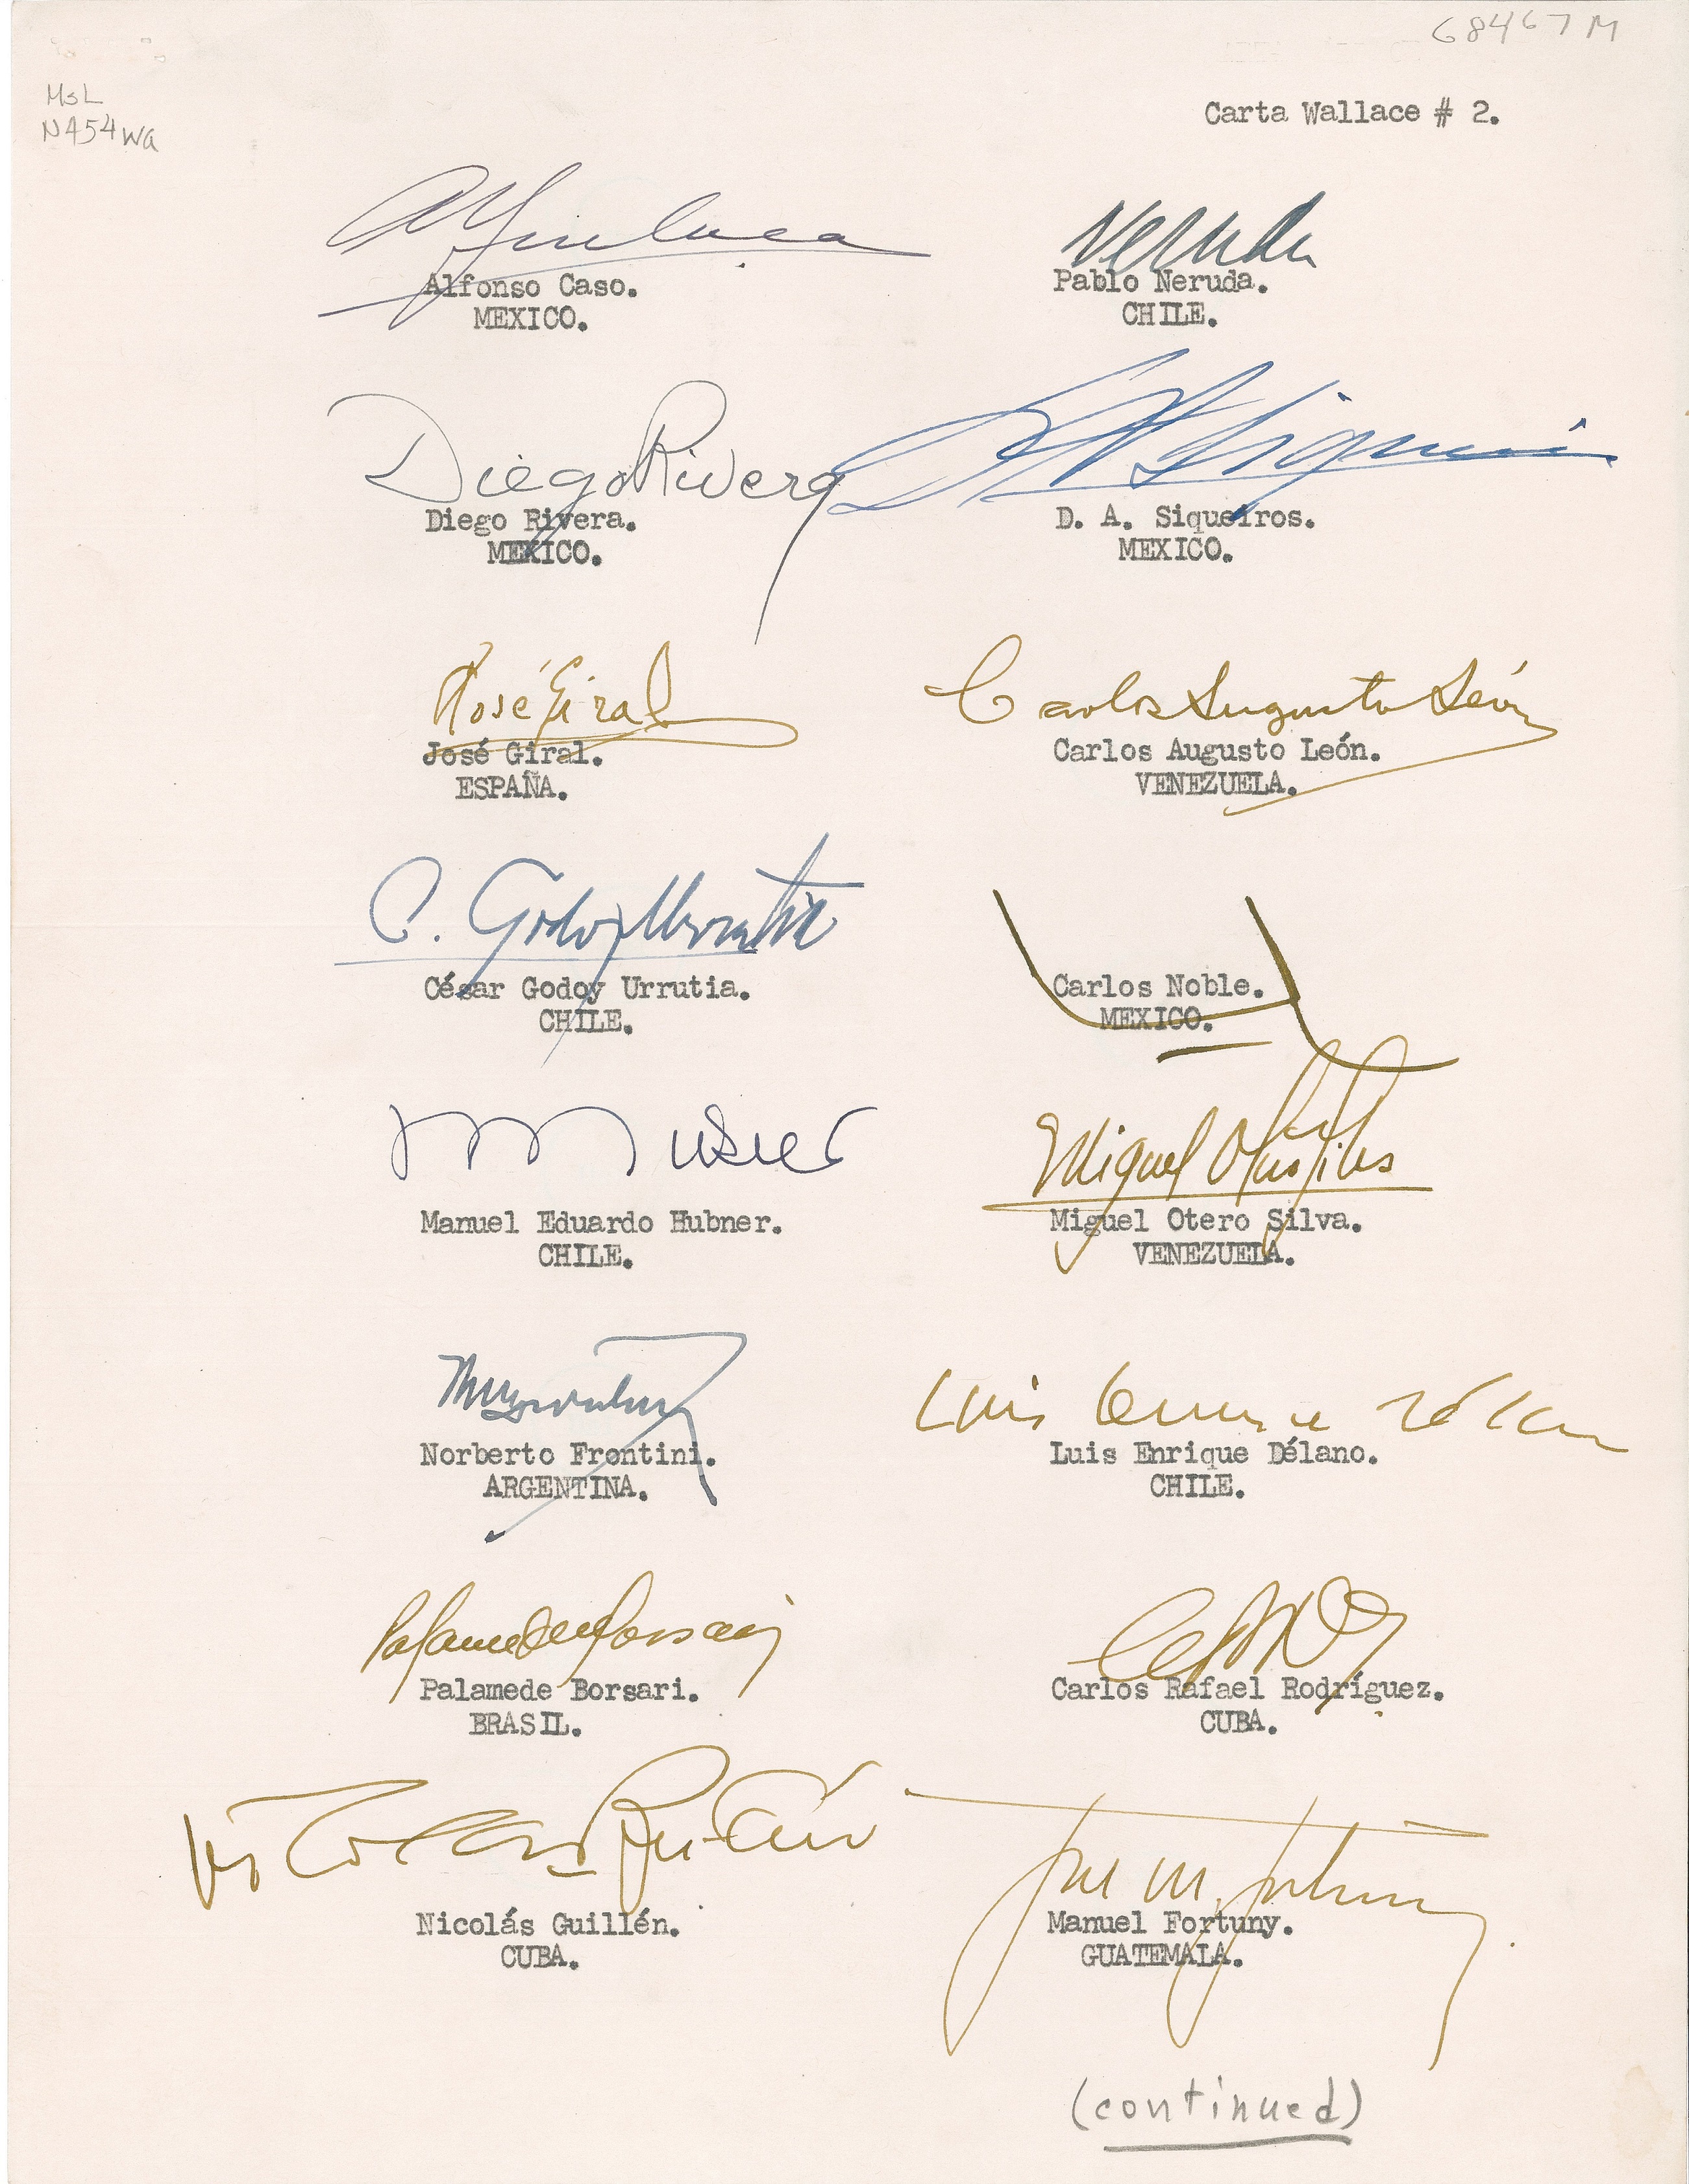 68467 M
MsL
N454wa
Carta Wallace # 2.
Alfonso Caso.
MEXICO.
Neruda
Pablo Neruda.
CHILE.
Diego Rivera
Diego Rivera.
MEXICO.
D. A. Siqueiros.
MEXICO.
José Giral
José Giral.
ESPAÑA.
Carlos Augusto León
Carlos Augusto León.
VENEZUELA.
C. Godoy Urrutia
César Godoy Urrutia.
CHILE.
Carlos Noble.
MEXICO.
Manuel Eduardo Hubner.
CHILE.
Miguel Otero Silva
Miguel Otero Silva.
VENEZUELA.
Norberto Frontini.
ARGENTINA.
Luis Enrique Délano
Luis Enrique Délano.
CHILE.
Palamede Borsari
Palamede Borsari.
BRASIL.
Carlos Rafael Rodríguez.
CUBA.
Nicolás Guillén.
CUBA.
Manuel Fortuny.
GUATEMALA.
(continued)